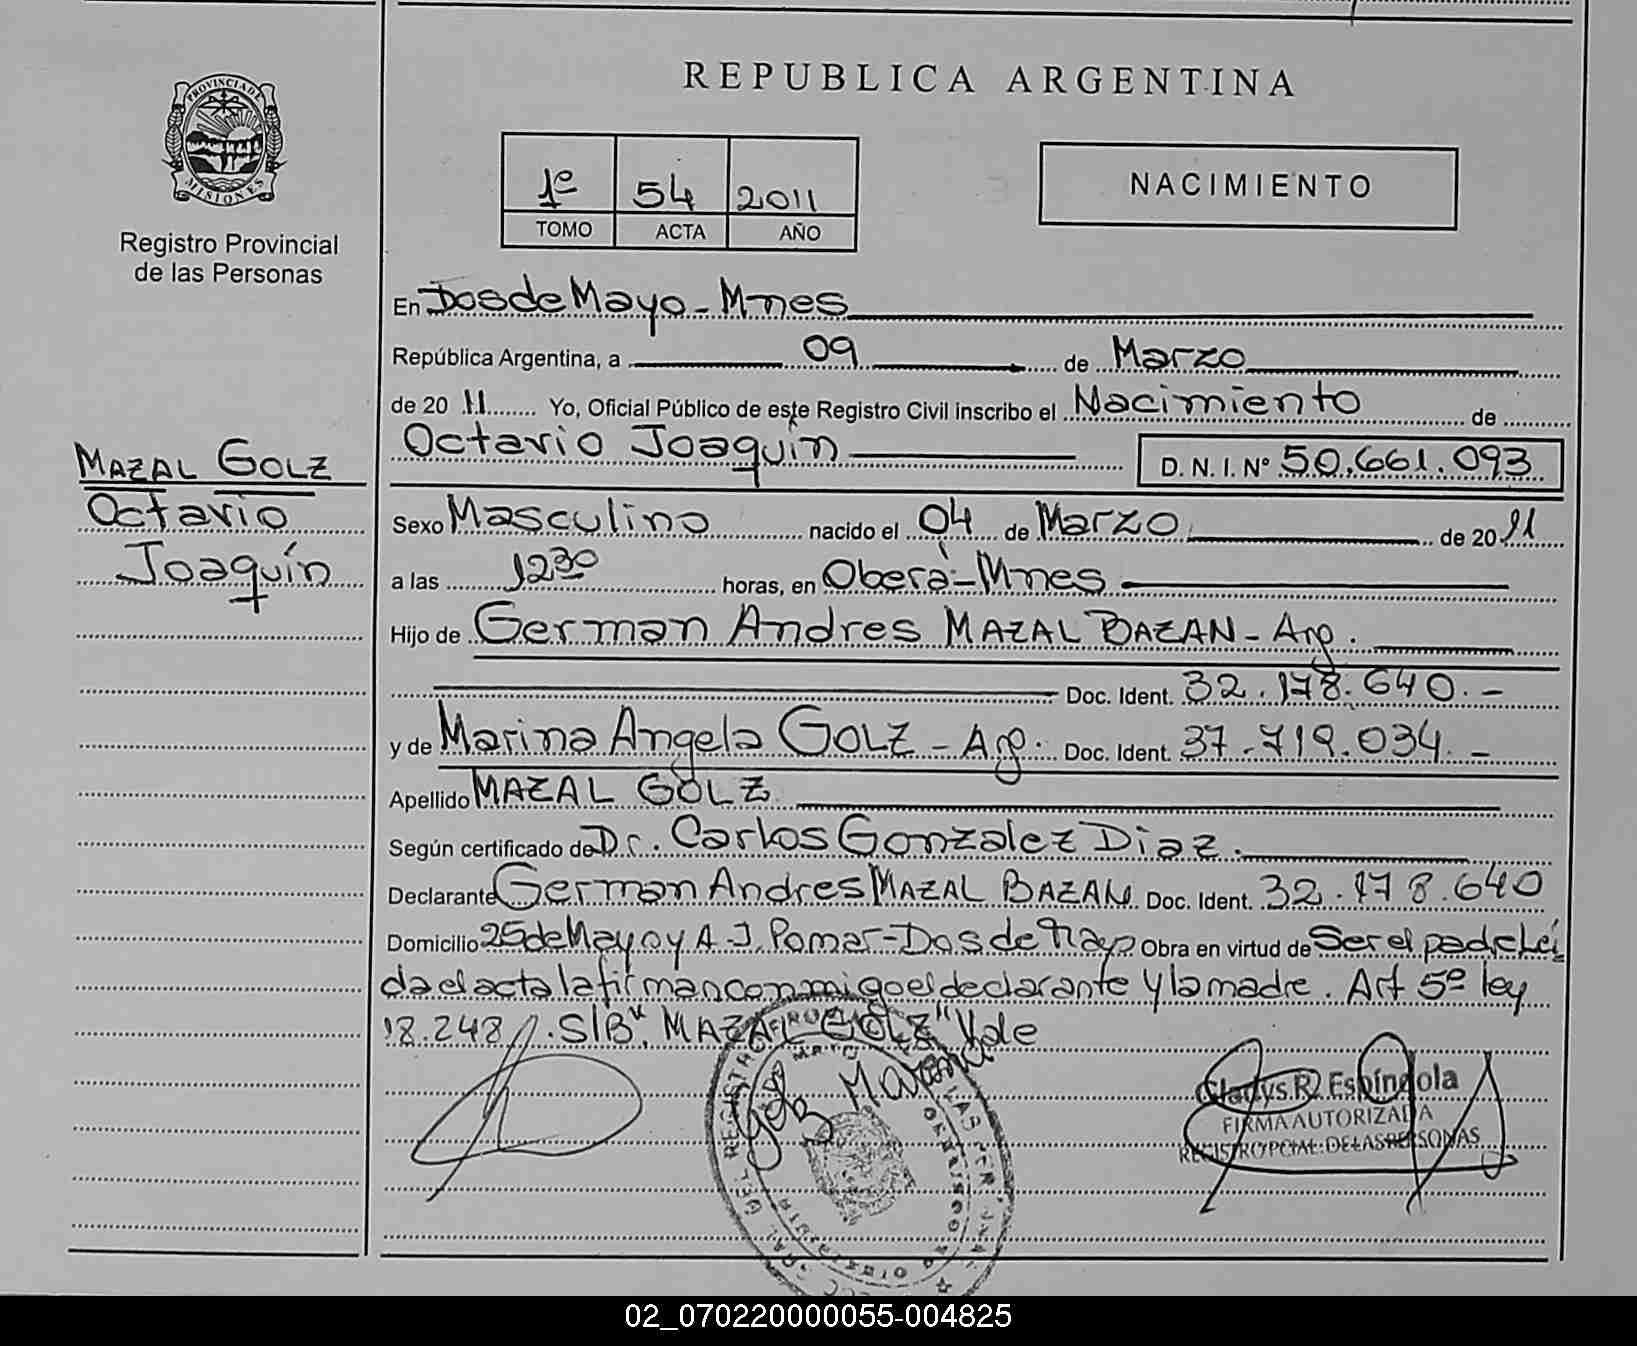 REPUBLICA ARGENTINA
PROVINCIA DE
MISIONES
Registro Provincial
de las Personas
1º 54 2011
TOMO ACTA AÑO
NACIMIENTO
En Dos de Mayo - Mnes
República Argentina, a 09 de Marzo
de 20 11 Yo, Oficial Público de este Registro Civil inscribo el Nacimiento de
Octavio Joaquín D. N. I. Nº 50.661.093
MAZAL GOLZ
Octavio
Joaquín
Sexo Masculino nacido el 04 de Marzo de 20 11
a las 12 30 horas, en Oberá - Mnes
Hijo de German Andres MAZAL BAZAN - Arg.
Doc. Ident. 32.178.640.-
y de Marina Angela GOLZ - Arg. Doc. Ident. 37.719.034.-
Apellido MAZAL GOLZ
Según certificado de Dr. Carlos Gonzalez Diaz.
Declarante German Andres MAZAL BAZAN Doc. Ident. 32.178.640
Domicilio 25 de Mayo y A.J. Pomar - Dos de Mayo Obra en virtud de Ser el padre Leí
da el acta la firman conmigo el declarante y la madre. Art 5º ley
18.248 S/B "MAZAL GOLZ" Vale
Golz Marina
Gladys R. Espíndola
FIRMA AUTORIZADA
REGISTRO PCIAL. DE LAS PERSONAS
02_070220000055-004825